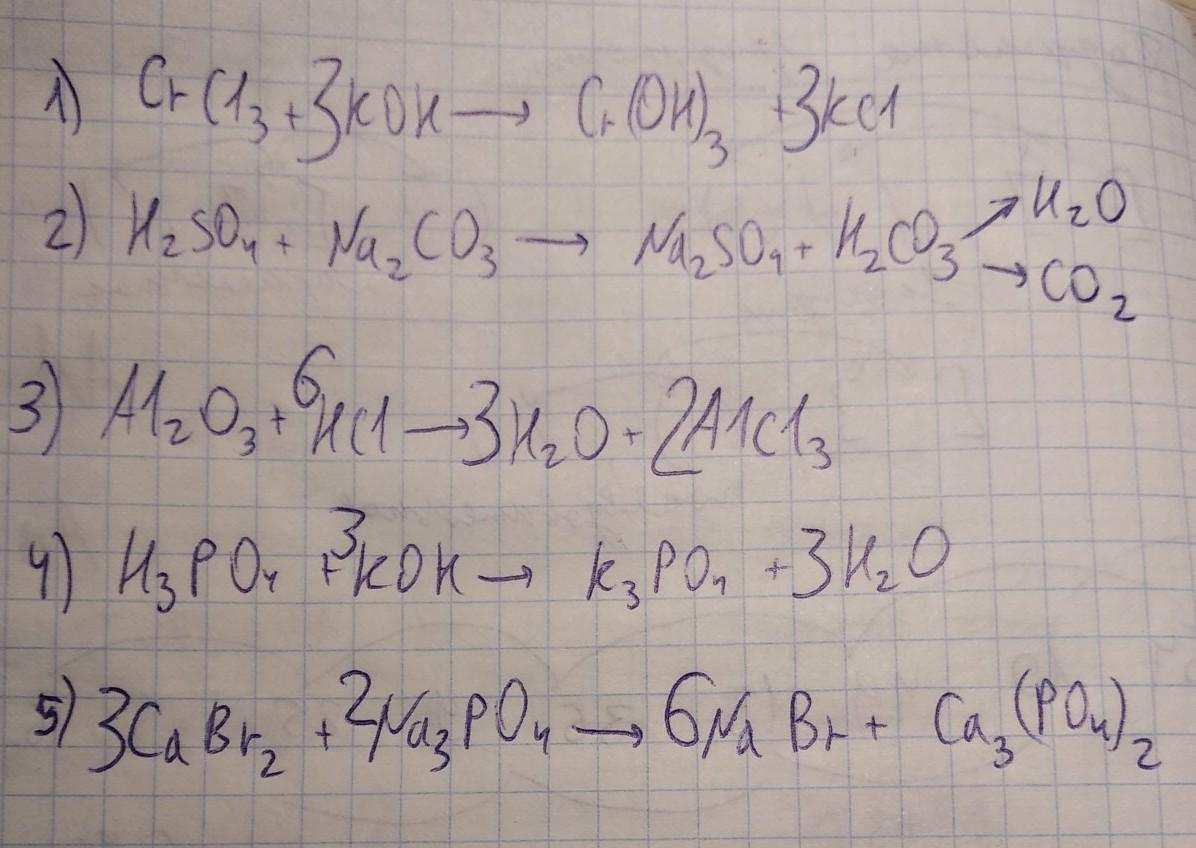 1) CrCl₃ + 3KOH → Cr(OH)₃ + 3KCl
2) H₂SO₄ + Na₂CO₃ → Na₂SO₄ + H₂CO₃ ↗ H₂O → CO₂
3) Al₂O₃ + 6HCl → 3H₂O + 2AlCl₃
4) H₃PO₄ + 3KOH → K₃PO₄ + 3H₂O
5) 3CaBr₂ + 2Na₃PO₄ → 6NaBr + Ca₃(PO₄)₂